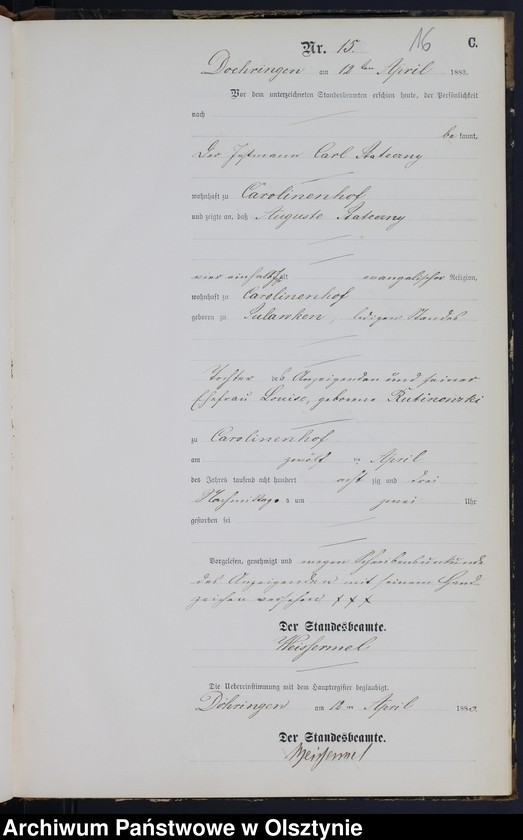 16
Nr. 15. C.
Doehringen am 12 ten April 1883.
Vor dem unterzeichneten Standesbeamten erschien heute, der Persönlichkeit
nach
be kannt,
Der Instmann Carl
wohnhaft zu Carolinenhof
und zeigte an, daß Auguste
vier einhalb J. alt evangelischer Religion,
wohnhaft zu Carolinenhof
geboren zu ledigen Standes
Tochter des Anzeigenden und seiner
Ehefrau Louise, geborene
zu Carolinenhof
am zwölf ten April
des Jahres tausend acht hundert acht zig und drei
Nachmittags um zwei Uhr
gestorben sei
Vorgelesen, genehmigt und wegen Schreibensunkunde
des Anzeigenden mit seinem Hand-
zeichen versehen + + +
Der Standesbeamte.
Weissermel
Die Uebereinstimmung mit dem Hauptregister beglaubigt.
Döhringen am 12 ten April 188
Der Standesbeamte.
Weissermel
Archiwum Państwowe w Olsztynie